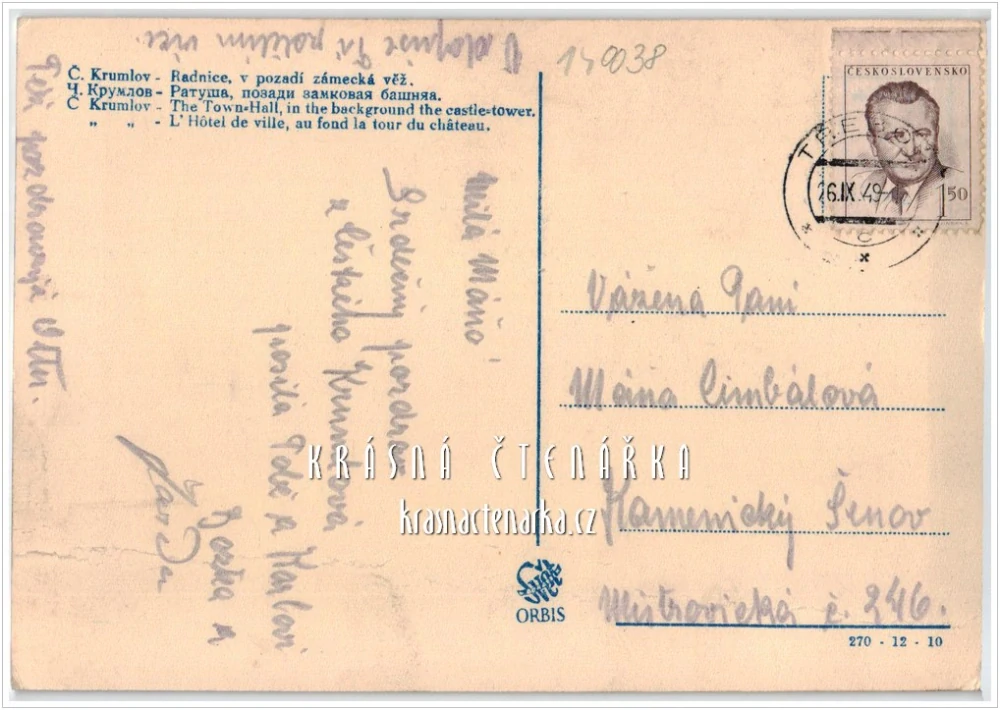 Č. Krumlov - Radnice, v pozadí zámecká věž.
Ч. Крумлов - Ратуша, позади замковая башняа.
Č Krumlov - The Town-Hall, in the background the castle-tower.
„ „ - L'Hôtel de ville, au fond la tour du château.
149038
ČESKOSLOVENSKO
1 50
26.IX.49
C
Milá Máňo
Srdečný pozdrav
z Českého Krumlova
posílá Tobě a Karlovi
Božka a
Jarda
V dopise Ti
více
Tebe pozdravuje
Vážená Paní
Máňa Cimbálová
Kamenický Šenov
Mistrovická č. 246.
KRÁSNÁ ČTENÁŘKA
krasnactenarka.cz
ORBIS
270 - 12 - 10